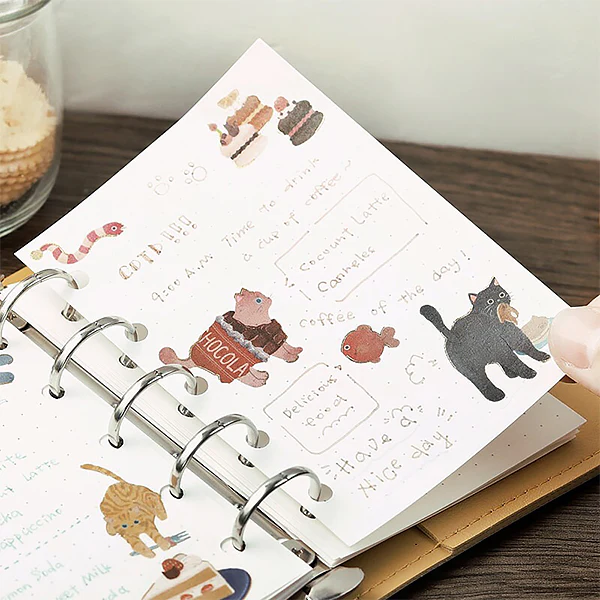 COTD !!!
9:00 A.M. Time to drink
a cup of coffee~
Coconut Latte
Canheles
coffee of the day!
CHOCOLA
Delicious
food
Have a
Nice day
Latte
appuccino
Soda
Milk